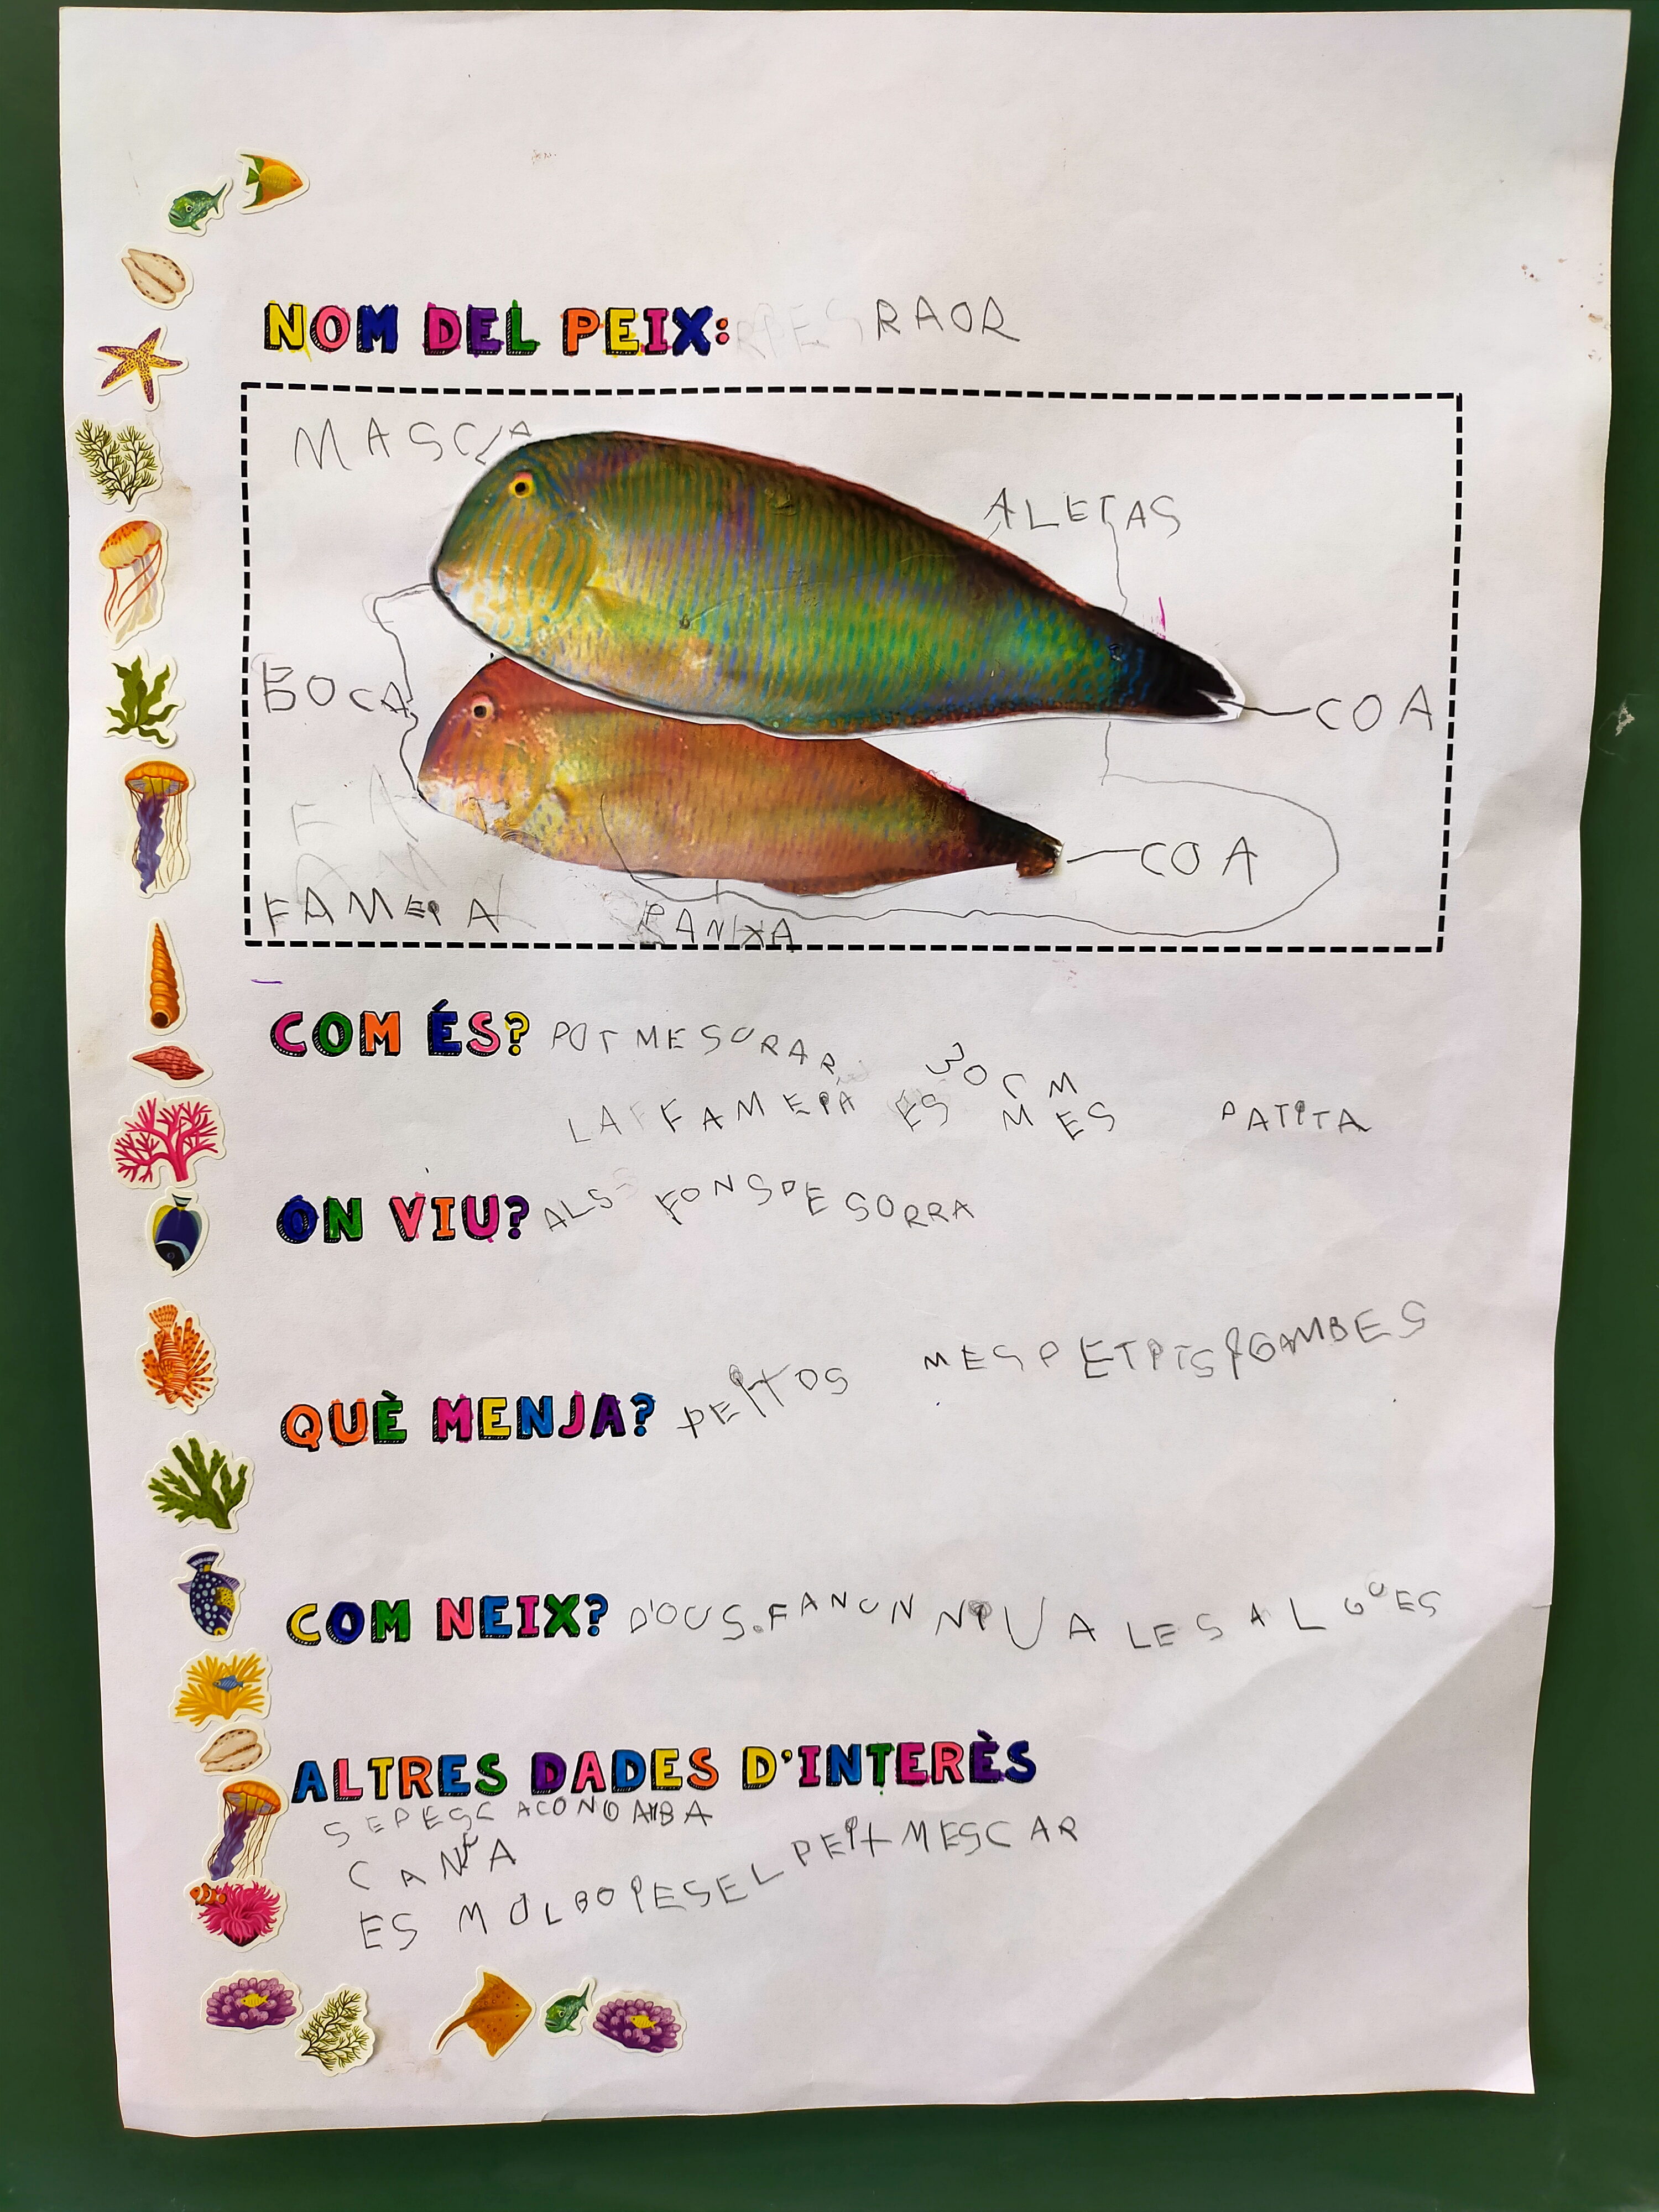 NOM DEL PEIX: RAOR
MASCLA
ALETAS
BOCA
COA
COA
FAMEIA
PANXA
COM ÉS? POT MESURAR
30 CM
LA FAMEIA ES MES PATITA
ON VIU? ALS FONS DE SORRA
QUÈ MENJA? PEIXOS MES PETITS I GAMBES
COM NEIX? D'OUS. FAN UN NIU A LES ALGUES
ALTRES DADES D'INTERÈS
SE PESCA
CANYA
ES MOL BO I ES EL PEIX MES CAR